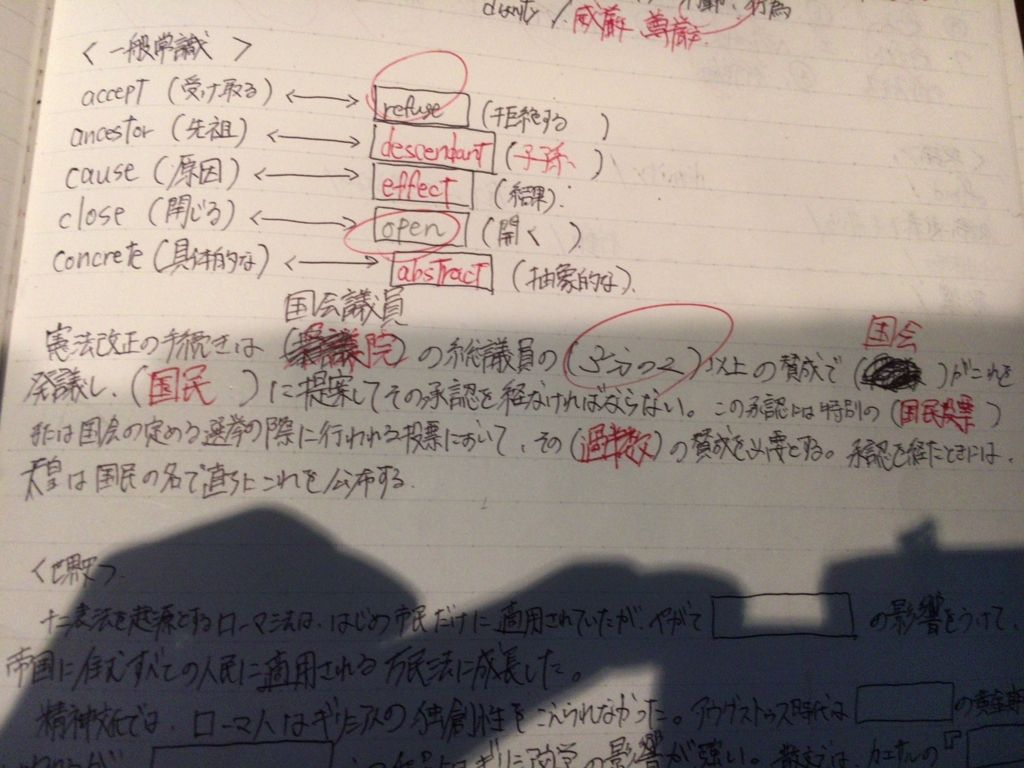 dignity / 威厳、尊厳 行為
<一般常識>
accept (受け取る) ←→ refuse (拒絶する)
ancestor (先祖) ←→ descendant (子孫)
cause (原因) ←→ effect (結果)
close (閉じる) ←→ open (開く)
concrete (具体的な) ←→ abstract (抽象的な)
国会議員 国会
憲法改正の手続きは (議院) の総議員の (3分の2) 以上の賛成で ( ) がこれを
発議し、(国民) に提案してその承認を経なければならない。この承認には特別の (国民投票)
または国会の定める選挙の際に行われる投票において、その (過半数) の賛成を必要とする。承認を経たときには、
天皇は国民の名で直ちにこれを公布する。
<世界史>
十二表法を起源とするローマ法は、はじめ市民だけに適用されていたが、やがて の影響をうけて、
帝国に住むすべての人民に適用される万民法に成長した。
精神文化では、ローマ人はギリシア人の独創性をこえられなかった。アウグストゥス時代は の黄金期
ギリシア文学の影響が強い。散文では、カエサルの『